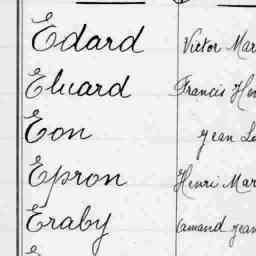 Edard Victor Mar
Eluard Francis Hen
Eon Jean Lo
Epron Henri Mar
Eraby Armand Jean